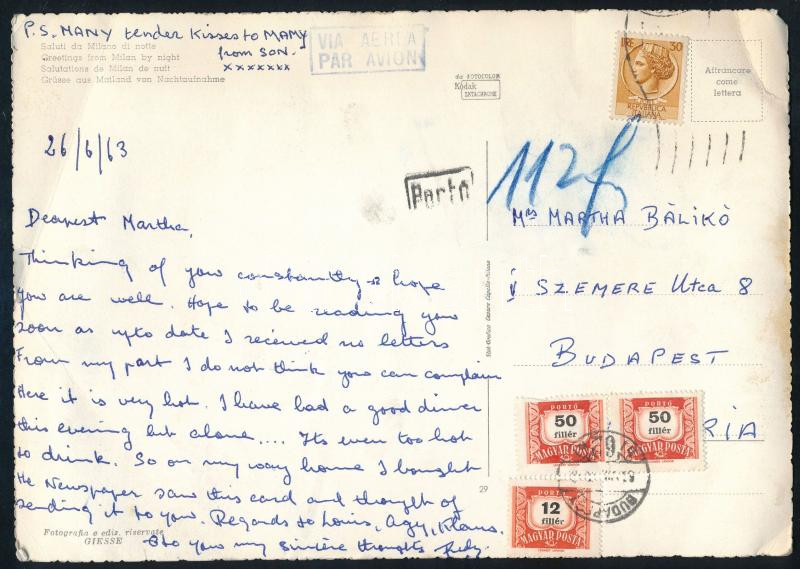 P.S. MANY tender Kisses to MAMY
from SON.
xxxxxxx
Saluti da Milano di notte
Greetings from Milan by night
Salutations de Milan de nuit
Grüsse aus Mailand von Nachtaufnahme
VIA AEREA
PAR AVION
da FOTOCOLOR
Kodak
EKTACHROME
LIRE 30
REPVBBLICA
ITALIANA
Affrancare
come
lettera
26/6/63
Porto
112 f
Dearest Martha,
Thinking of you constantly & hope
you are well. Hope to be reading you
soon as upto date I received no letters
From my part I do not think you can complain
Here it is very hot. I have had a good dinner
this evening but alone.... Its even too hot
to drink. So on my way home I bought
the Newspaper saw this card and thought of
sending it to you. Regards to Louis, Agy, Klara.
& to you my sincère thoughts
Mrs MARTHA BÀLIKÒ
V SZEMERE Utca 8
BUDAPEST
RIA
PORTÓ
50
fillér
MAGYAR POSTA
PORTÓ
50
fillér
MAGYAR POSTA
PORTÓ
12
fillér
MAGYAR POSTA
BUDAP
29
Fotografia e ediz. riservate
GIESSE